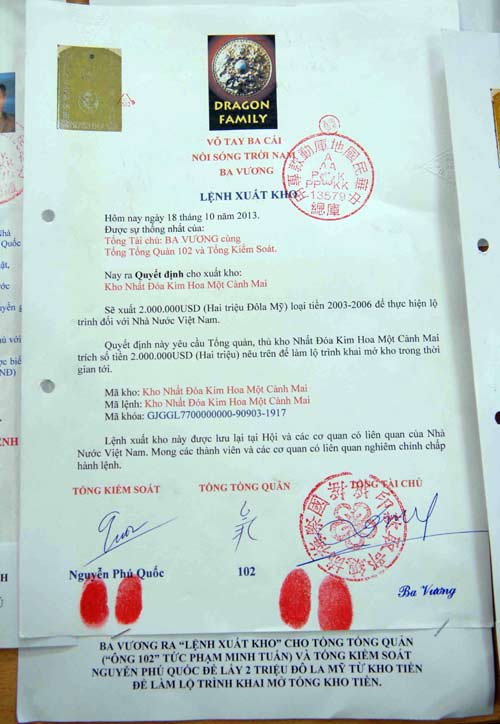 DRAGON
FAMILY
VỖ TAY BA CÁI
NỔI SÓNG TRỜI NAM
BA VƯƠNG
LỆNH XUẤT KHO
A
AA
13579
總庫
Hôm nay ngày 18 tháng 10 năm 2013.
Được sự thống nhất của:
Tổng Tài chủ: BA VƯƠNG cùng
Tổng Tổng Quản 102 và Tổng Kiểm Soát.
Nay ra Quyết định cho xuất kho:
Kho Nhất Đóa Kim Hoa Một Cành Mai
Sẽ xuất 2.000.000USD (Hai triệu Đôla Mỹ) loại tiền 2003-2006 để thực hiện lộ
trình đối với Nhà Nước Việt Nam.
Quyết định này yêu cầu Tổng quản, thủ kho Nhất Đóa Kim Hoa Một Cành Mai
trích số tiền 2.000.000USD (Hai triệu) nêu trên để làm lộ trình khai mở kho trong thời
gian tới.
Mã kho: Kho Nhất Đóa Kim Hoa Một Cành Mai
Mã lệnh: Kho Nhất Đóa Kim Hoa Một Cành Mai
Mã khóa: GJGGL7700000000-90903-1917
Lệnh xuất kho này được lưu lại tại Hội và các cơ quan có liên quan của Nhà
Nước Việt Nam. Mong các thành viên và các cơ quan có liên quan nghiêm chỉnh chấp
hành lệnh.
TỔNG KIỂM SOÁT TỔNG TỔNG QUẢN TỔNG TÀI CHỦ
Nguyễn Phú Quốc 102 Ba Vương
BA VƯƠNG RA “LỆNH XUẤT KHO” CHO TỔNG TỔNG QUẢN
(“ÔNG 102” TỨC PHẠM MINH TUẤN) VÀ TỔNG KIỂM SOÁT
NGUYỄN PHÚ QUỐC ĐỂ LẤY 2 TRIỆU ĐÔ LA MỸ TỪ KHO TIỀN
ĐỂ LÀM LỘ TRÌNH KHAI MỞ TỔNG KHO TIỀN.